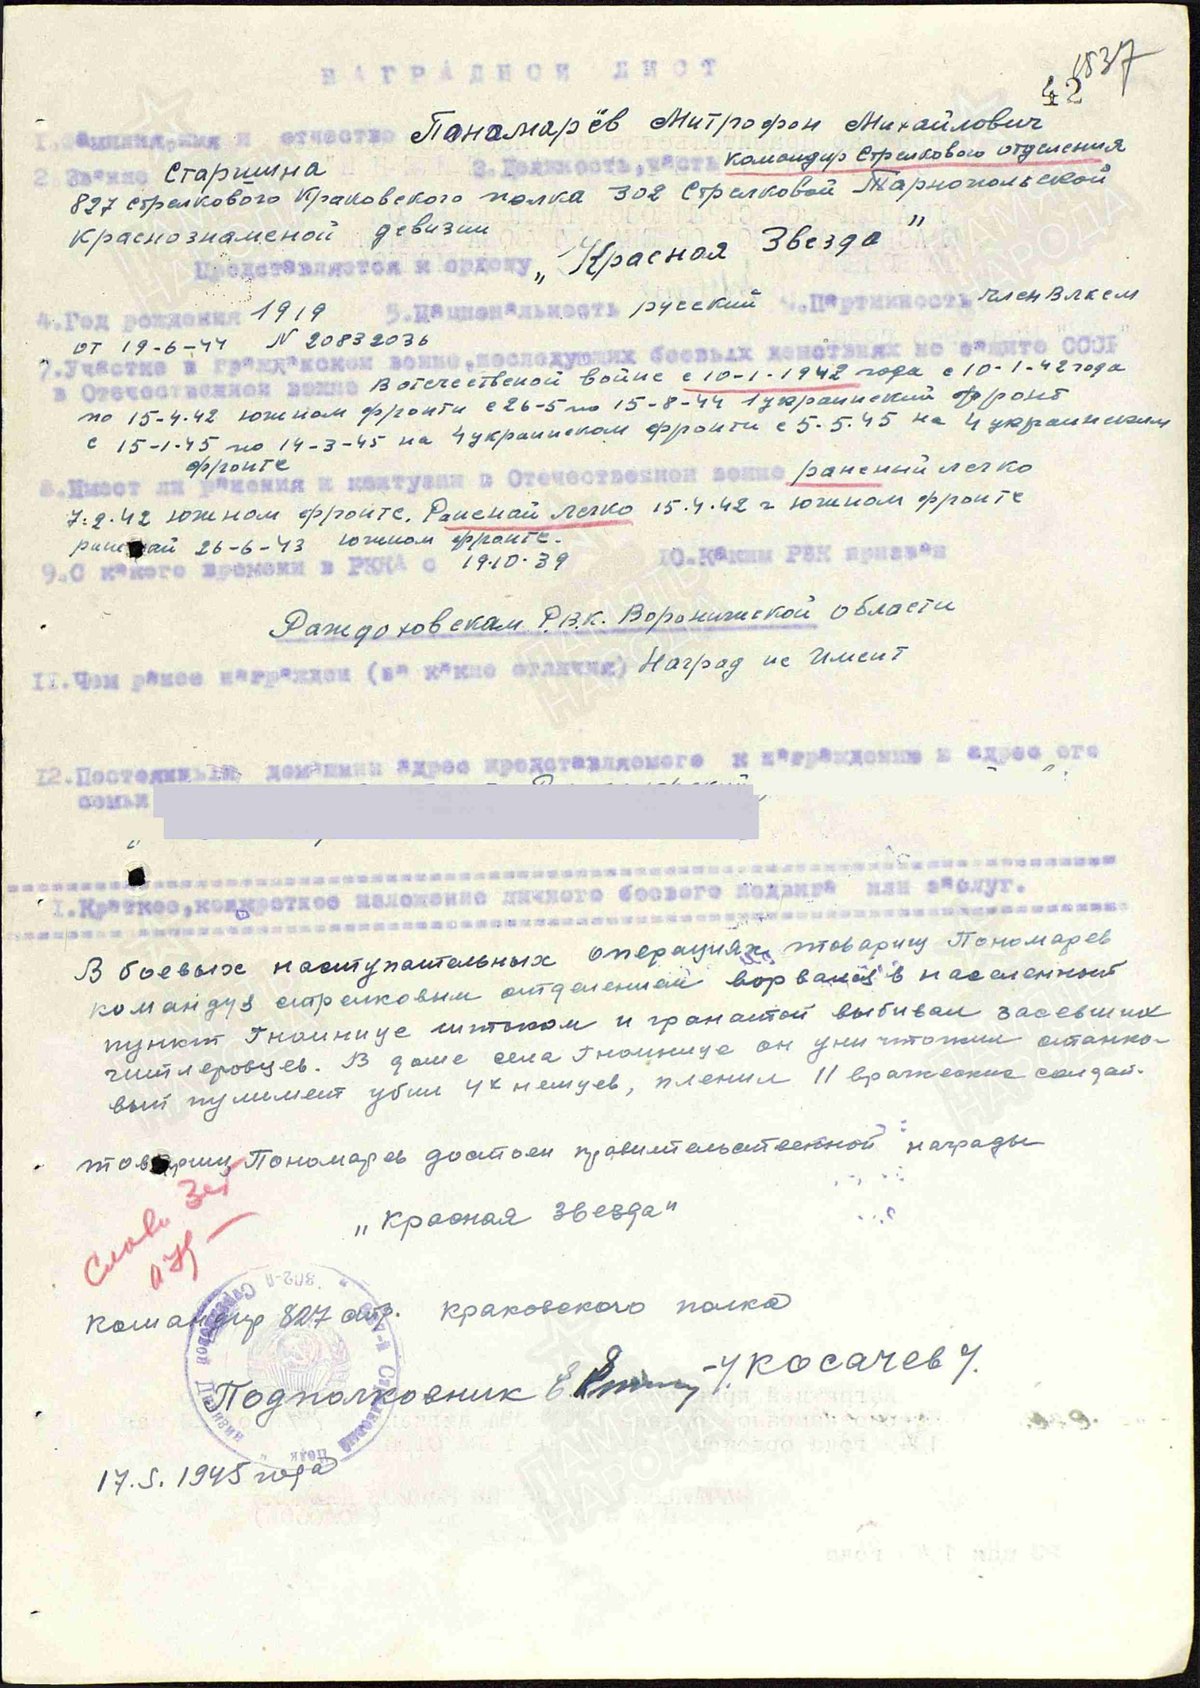 1537
42
НАГРАДНОЙ ЛИСТ
1.Фамилия,имя и отчество Панамарёв Митрофон Михайлович
2. Звание Старшина 3.Должность,часть Командир Стрелкового отделения
827 стрелкового Краковского полка 302 Стрелковой Тарнопольской
Краснознаменой девизии
Представляется к ордену „Красная Звезда"
4.Год рождения 1919 5.Национальность русский Партийность член Влксм
от 19-6-44 N 20832036
7.Участие в гражданской войне,последующих боевых действиях по защите СССР
в Отечественной войне В отечественой войне с 10-1-1942 года с 10-1-42 года
по 15-4-42 южном фронти с 26-5 по 15-8-44 1 украинский фронт
с 15-1-45 по 14-3-45 на 4 украинском фронти с 5.5.45 на 4 украинским
фронте
8.Имеет ли ранения и контузии в Отечественной войне раненый легко
7.2.42 южном фронте. Раненай легко 15.4.42 г южном фронте
раненай 26-6-43 южном фронте.
9.С какого времени в РККА с 19.10.39 10.Каким РВК призван
Р.В.К. Воронижской области
11.Чем ранее награжден (за какие отличия) Наград не Имеит
12.Постоянный домашний адрес представляемого к награждению и адрес его
семьи
1.Краткое,конкретное изложение личного боевого подвига или заслуг.
В боевых наступательных операциях товарищ Пономарев
командуя стрелковым отделением ворвался в населенный
пункт Гноинице штыком и гранатой выбивал засевших
гитлеровцев. В доме села Гноинице он уничтожил станко-
вый пулимет убил 4х немцев, пленил 11 вражеские солдат.
товарищ Пономарев достоен правительственной награды
„Красная звезда"
Слава 3ст
Командир 827 стр. краковского полка
Подполковник -/КОСАЧЕВ/.
302-й Стрелковой Дивизии
827-й Стрелковый Полк
17.5.1945 года